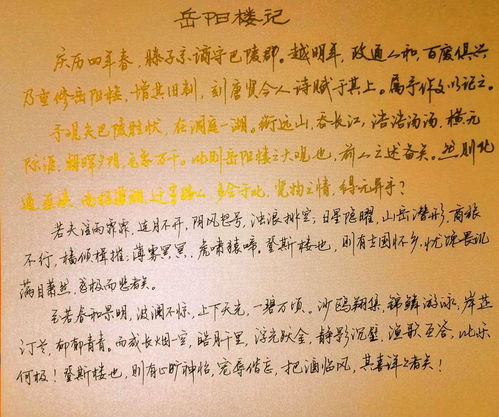 岳阳楼记
庆历四年春，滕子京谪守巴陵郡。越明年，政通人和，百废俱兴
乃重修岳阳楼，增其旧制，刻唐贤今人诗赋于其上。属予作文以记之。
予观夫巴陵胜状，在洞庭一湖。衔远山，吞长江，浩浩汤汤，横无
际涯，朝晖夕阴，气象万千。此则岳阳楼之大观也，前人之述备矣。然则北
通巫峡，南极潇湘，迁客骚人，多会于此，览物之情，得无异乎？
若夫淫雨霏霏，连月不开，阴风怒号，浊浪排空；日星隐曜，山岳潜形；商旅
不行，樯倾楫摧；薄暮冥冥，虎啸猿啼。登斯楼也，则有去国怀乡，忧谗畏讥
满目萧然，感极而悲者矣。
至若春和景明，波澜不惊，上下天光，一碧万顷。沙鸥翔集，锦鳞游泳，岸芷
汀兰，郁郁青青。而或长烟一空，皓月千里，浮光跃金，静影沉璧，渔歌互答，此乐
何极！登斯楼也，则有心旷神怡，宠辱偕忘，把酒临风，其喜洋洋者矣！